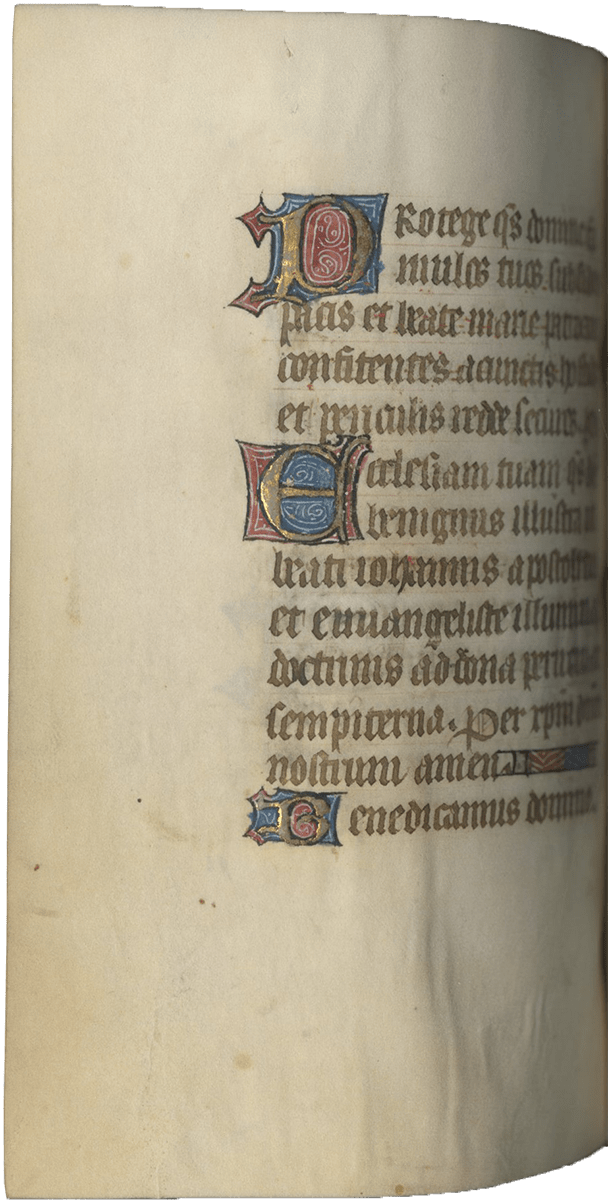 PRotege qs̄ domine fa
mulos tuos subsidiis
pacis et beate marie patroci
confitentes a cunctis hosti
et periculis redde secur
Ecclesiam tuam qs̄
benignus illustra
beati iohannis apostoli
et euuangeliste illumina
doctrinis ad dona
sempiterna. Per xp̄m dn̄m
nostrum amen
Benedicamus domino.